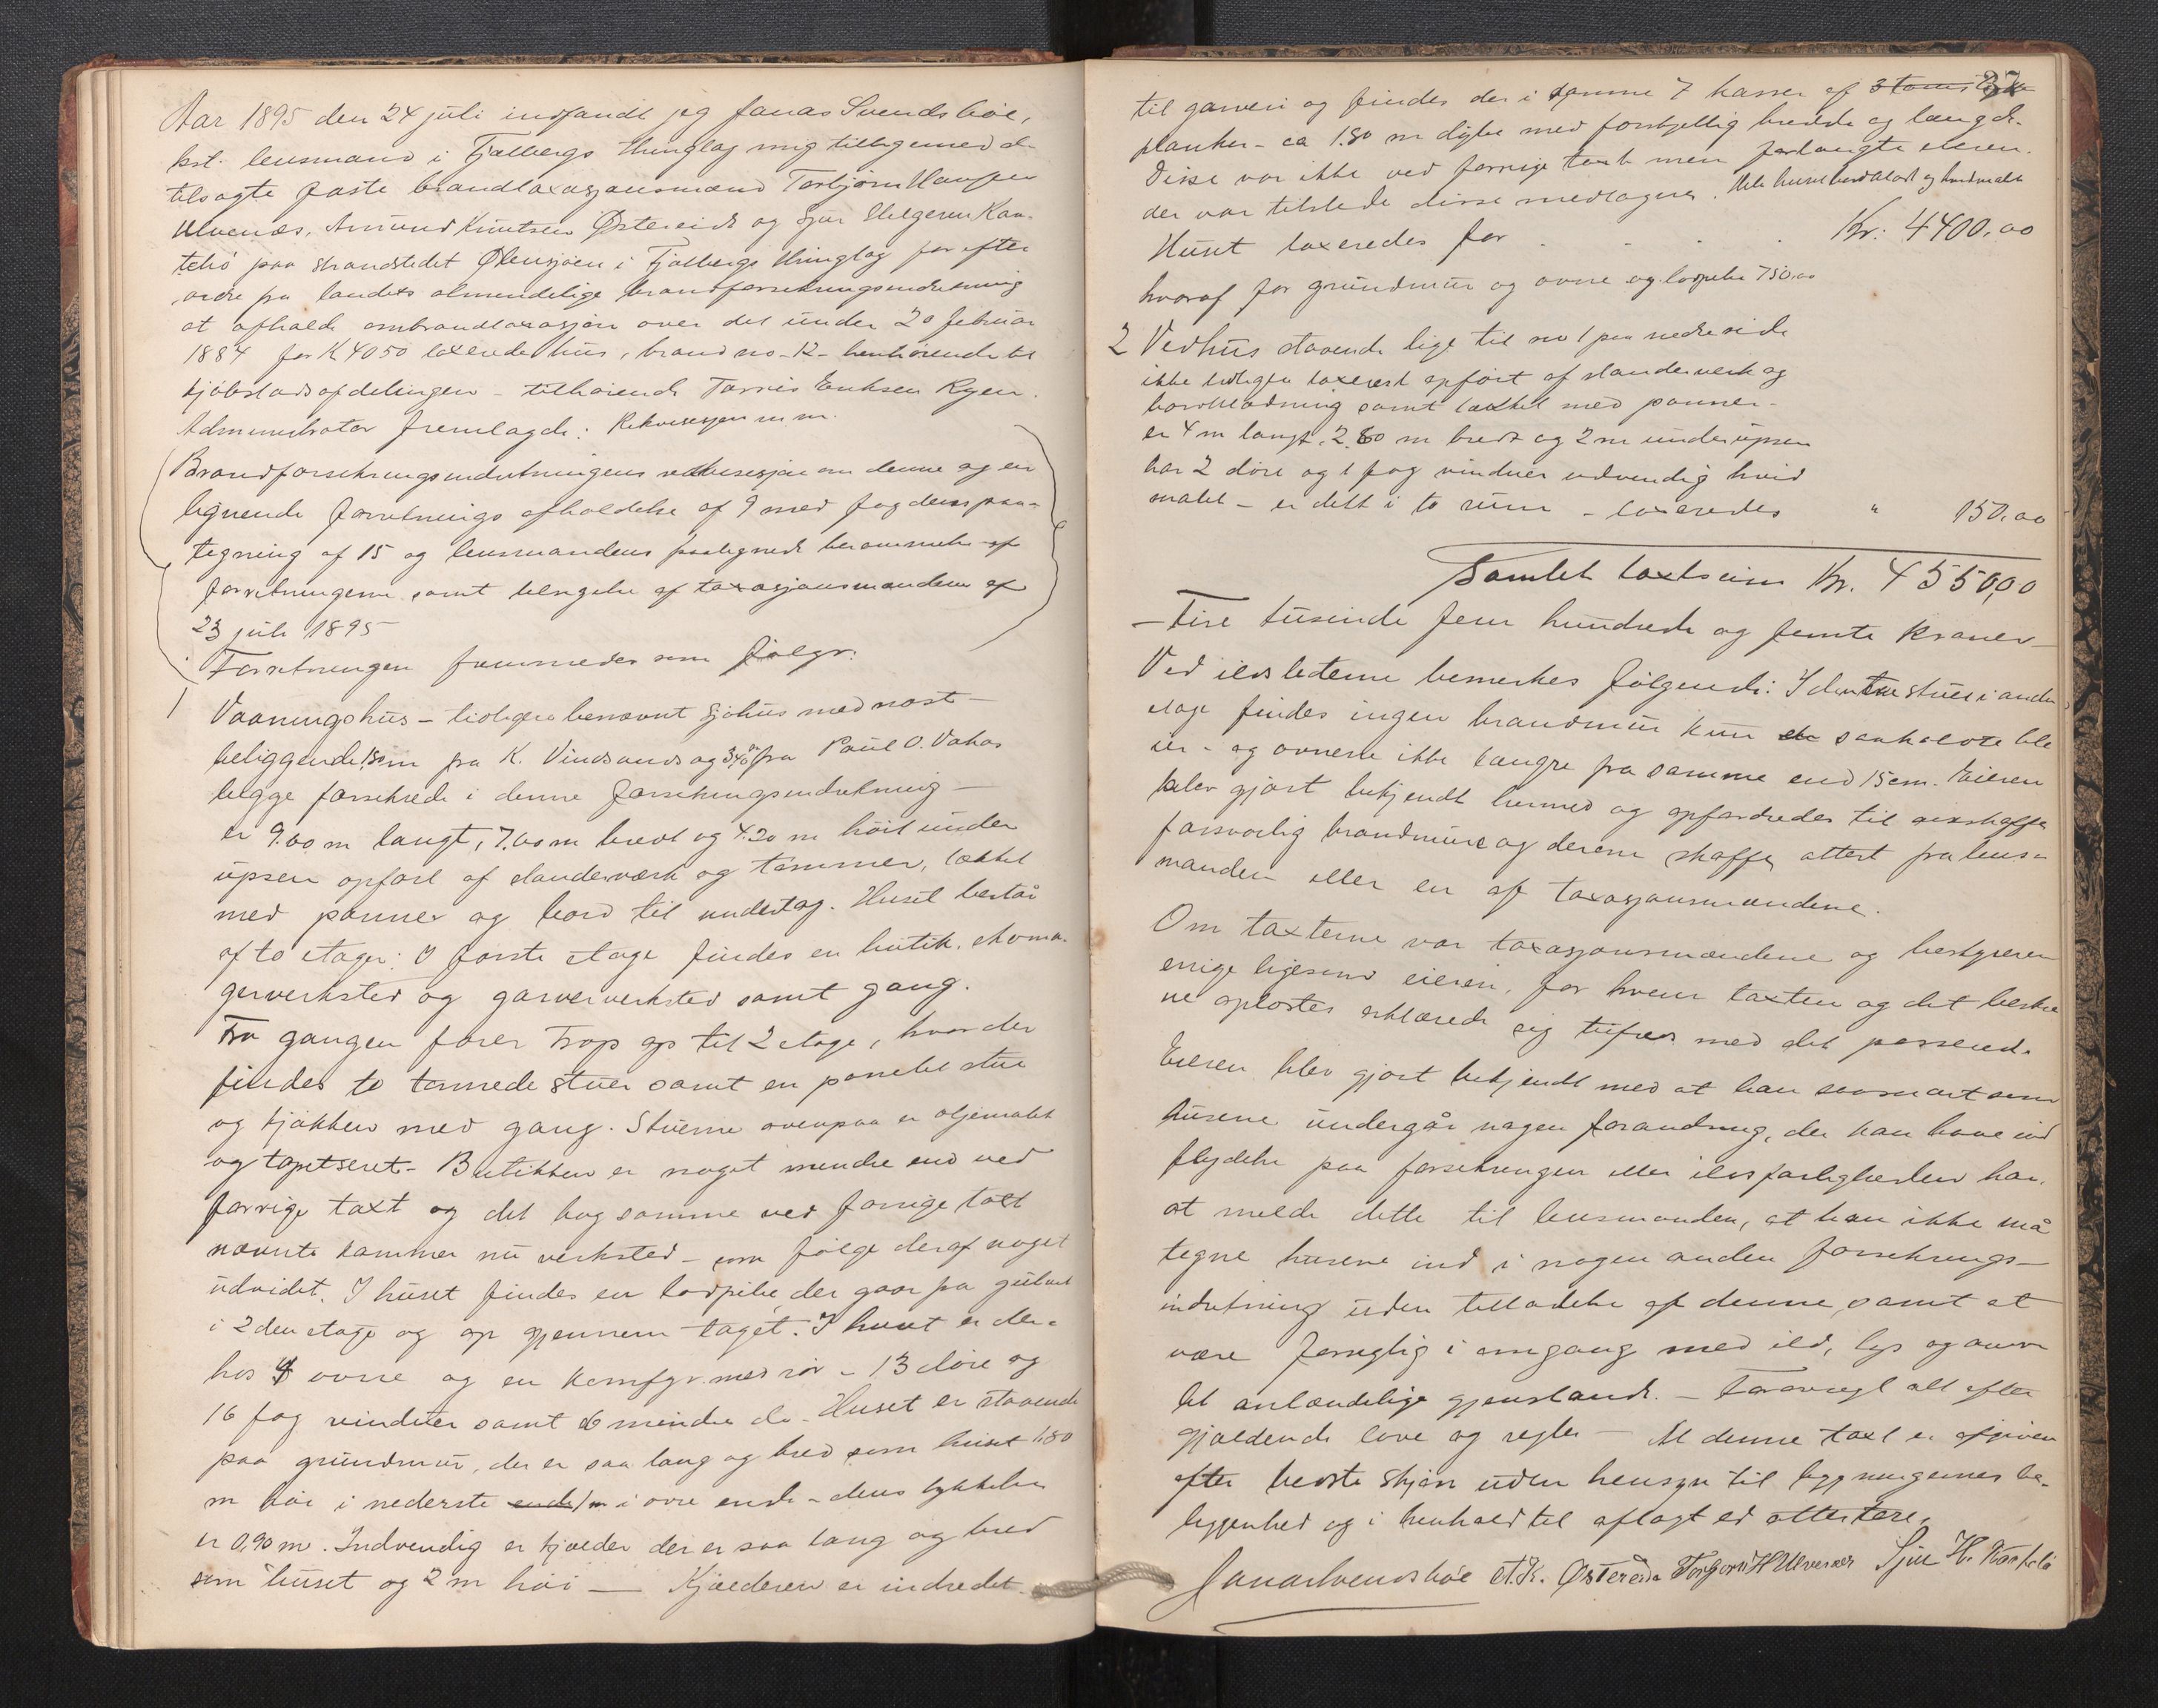 Aar 1895 den 24 juli indfandt jeg Jonas Svendsböe,
kst. lensmand i Fjælbergs thinglag mig tilligemed de
tilsagte faste brandtaxasjonsmænd Torbjørn Hansen
Ulvenæs, Amund Knutsen Østereide og Sjur Helgesen Kaa-
tebö paa strandstedet Ølensjøen i Fjælbergs thinglag for efter
ordre fra landets almendelige brandforsikringsindretning
at afholde ombrandtaxasjon over det under 20 februar
1884 for K 4050 taxerede hus, brand no - 12 - henhörende til
kjöbstadsafdelingen - tilhörende Tørris Eriksen Ryen.
Administrator fremlagde: Rekvisisjon m. m.
Brandforsikringsindretningens rekvisisjon om denne og en
lignende forretnings afholdelse af 9 med fogdens paa-
tegning af 15 og lensmandens paategnede berammelse af
forretningerne samt tilsigelse af taxasjonsmændene af
23 juli 1895
Forretningen fremmedes som fölger:
1 Vaaningshus - tidligere benævnt sjöhus med nøst -
beliggende 1.80 m fra K. Vindsands og 3.40 m fra Paul O. Vakas
begge forsikrede i denne forsikringsindretning -
er 9.00 m langt, 7.00 m bredt og 4.20 m höit under
upsen opfört af standerværk og tömmer, tækket
med panner og bord til undertag. Huset består
af to etager: I förste etage findes en butik, skoma-
gerverksted og garververksted samt gang.
Fra gangen fører Trap op til 2 etage, hvor der
findes to tømrede stuer samt en panelet stue
og kjøkken med gang. Stuerne ovenpaa er oljemalet
og tapetseret - Butikken er noget mindre end ved
forrige taxt og det bag samme ved forrige taxt
nævnte kammer nu verksted - som følge deraf noget
udvidet. I huset findes en torpibe der gaar fra gulvet
i 2den etage og op gjennem taget. I huset er der-
hos 4 ovne og en komfyr med rör - 13 döre og
16 fag vinduer samt 6 mindre do - Huset er staaende
paa grundmur, der er saa lang og bred som huset 1.80
m höi i nederste ende 1 m i övre ende - dens tykkelse
er 0,90 m. Indvendig er kjælder der er saa lang og bred
som huset og 2 m höi — Kjælderen er indredet
37
til garveri og findes der i samme 7 karrer af 3 toms
planker - ca 1.80 m dybe med forskjellig bredde og længde.
Disse var ikke ved forrige taxt men forlangte eieren
der var tilstede disse medtagne. Hele huset bordklædt og hvidmalet
Huset taxeredes for . . . . Kr. 4400,00
hvoraf for grundmur og ovne og torpibe 750,00
2 Vedhus staaende lige til no 1 paa nedre side
ikke tidligere taxeret opfört af standerverk og
bordklædning samt tækket med panner -
er 4 m langt, 2.80 m bredt og 2 m under upsen
har 2 döre og 1 fag vinduer udvendig hvid
malet - er delt i to rum - taxeredes " 150,00
Samlet taxtsum Kr. 4550,00
- Fire tusinde fem hundrede og femti kroner -
Ved ildstederne bemerkes fölgende: I de to stuer i anden
etage findes ingen brandmur kun
- og ovnene ikke længre fra samme end 15 cm. Eieren
blev gjort bekjendt hermed og opfordredes til at skaffe
forsvarlig brandmure og derom skaffe attest fra lens-
manden eller en af taxasjonsmændene.
Om taxterne var taxasjonsmændene og bestyreren
enige ligesom eieren, for hvem taxten og det beskre
ne oplæstes erklærede sig tilfreds med det passerede.
Eieren blev gjort bekjendt med at han saasnart som
husene undergår nogen forandring, der kan have ind
flydelse paa forsikringen eller ildsfarligheden har
at melde dette til lensmanden, at han ikke må
tegne husene ind i nogen anden forsikrings-
indretning uden tilladelse af denne, samt at
være forsigtig i omgang med ild, lys og andre
let antændelige gjenstande. - Forövrigt alt efter
gjældende love og regler - At denne taxt er afgiven
efter bedste skjön uden hensyn til bygningernes be-
liggenhed og i henhold til aflagt ed attesteres.
Jonas Svendsböe A. K. Østereide Torbjørn H Ulvenæs Sjur H. Kaatebö